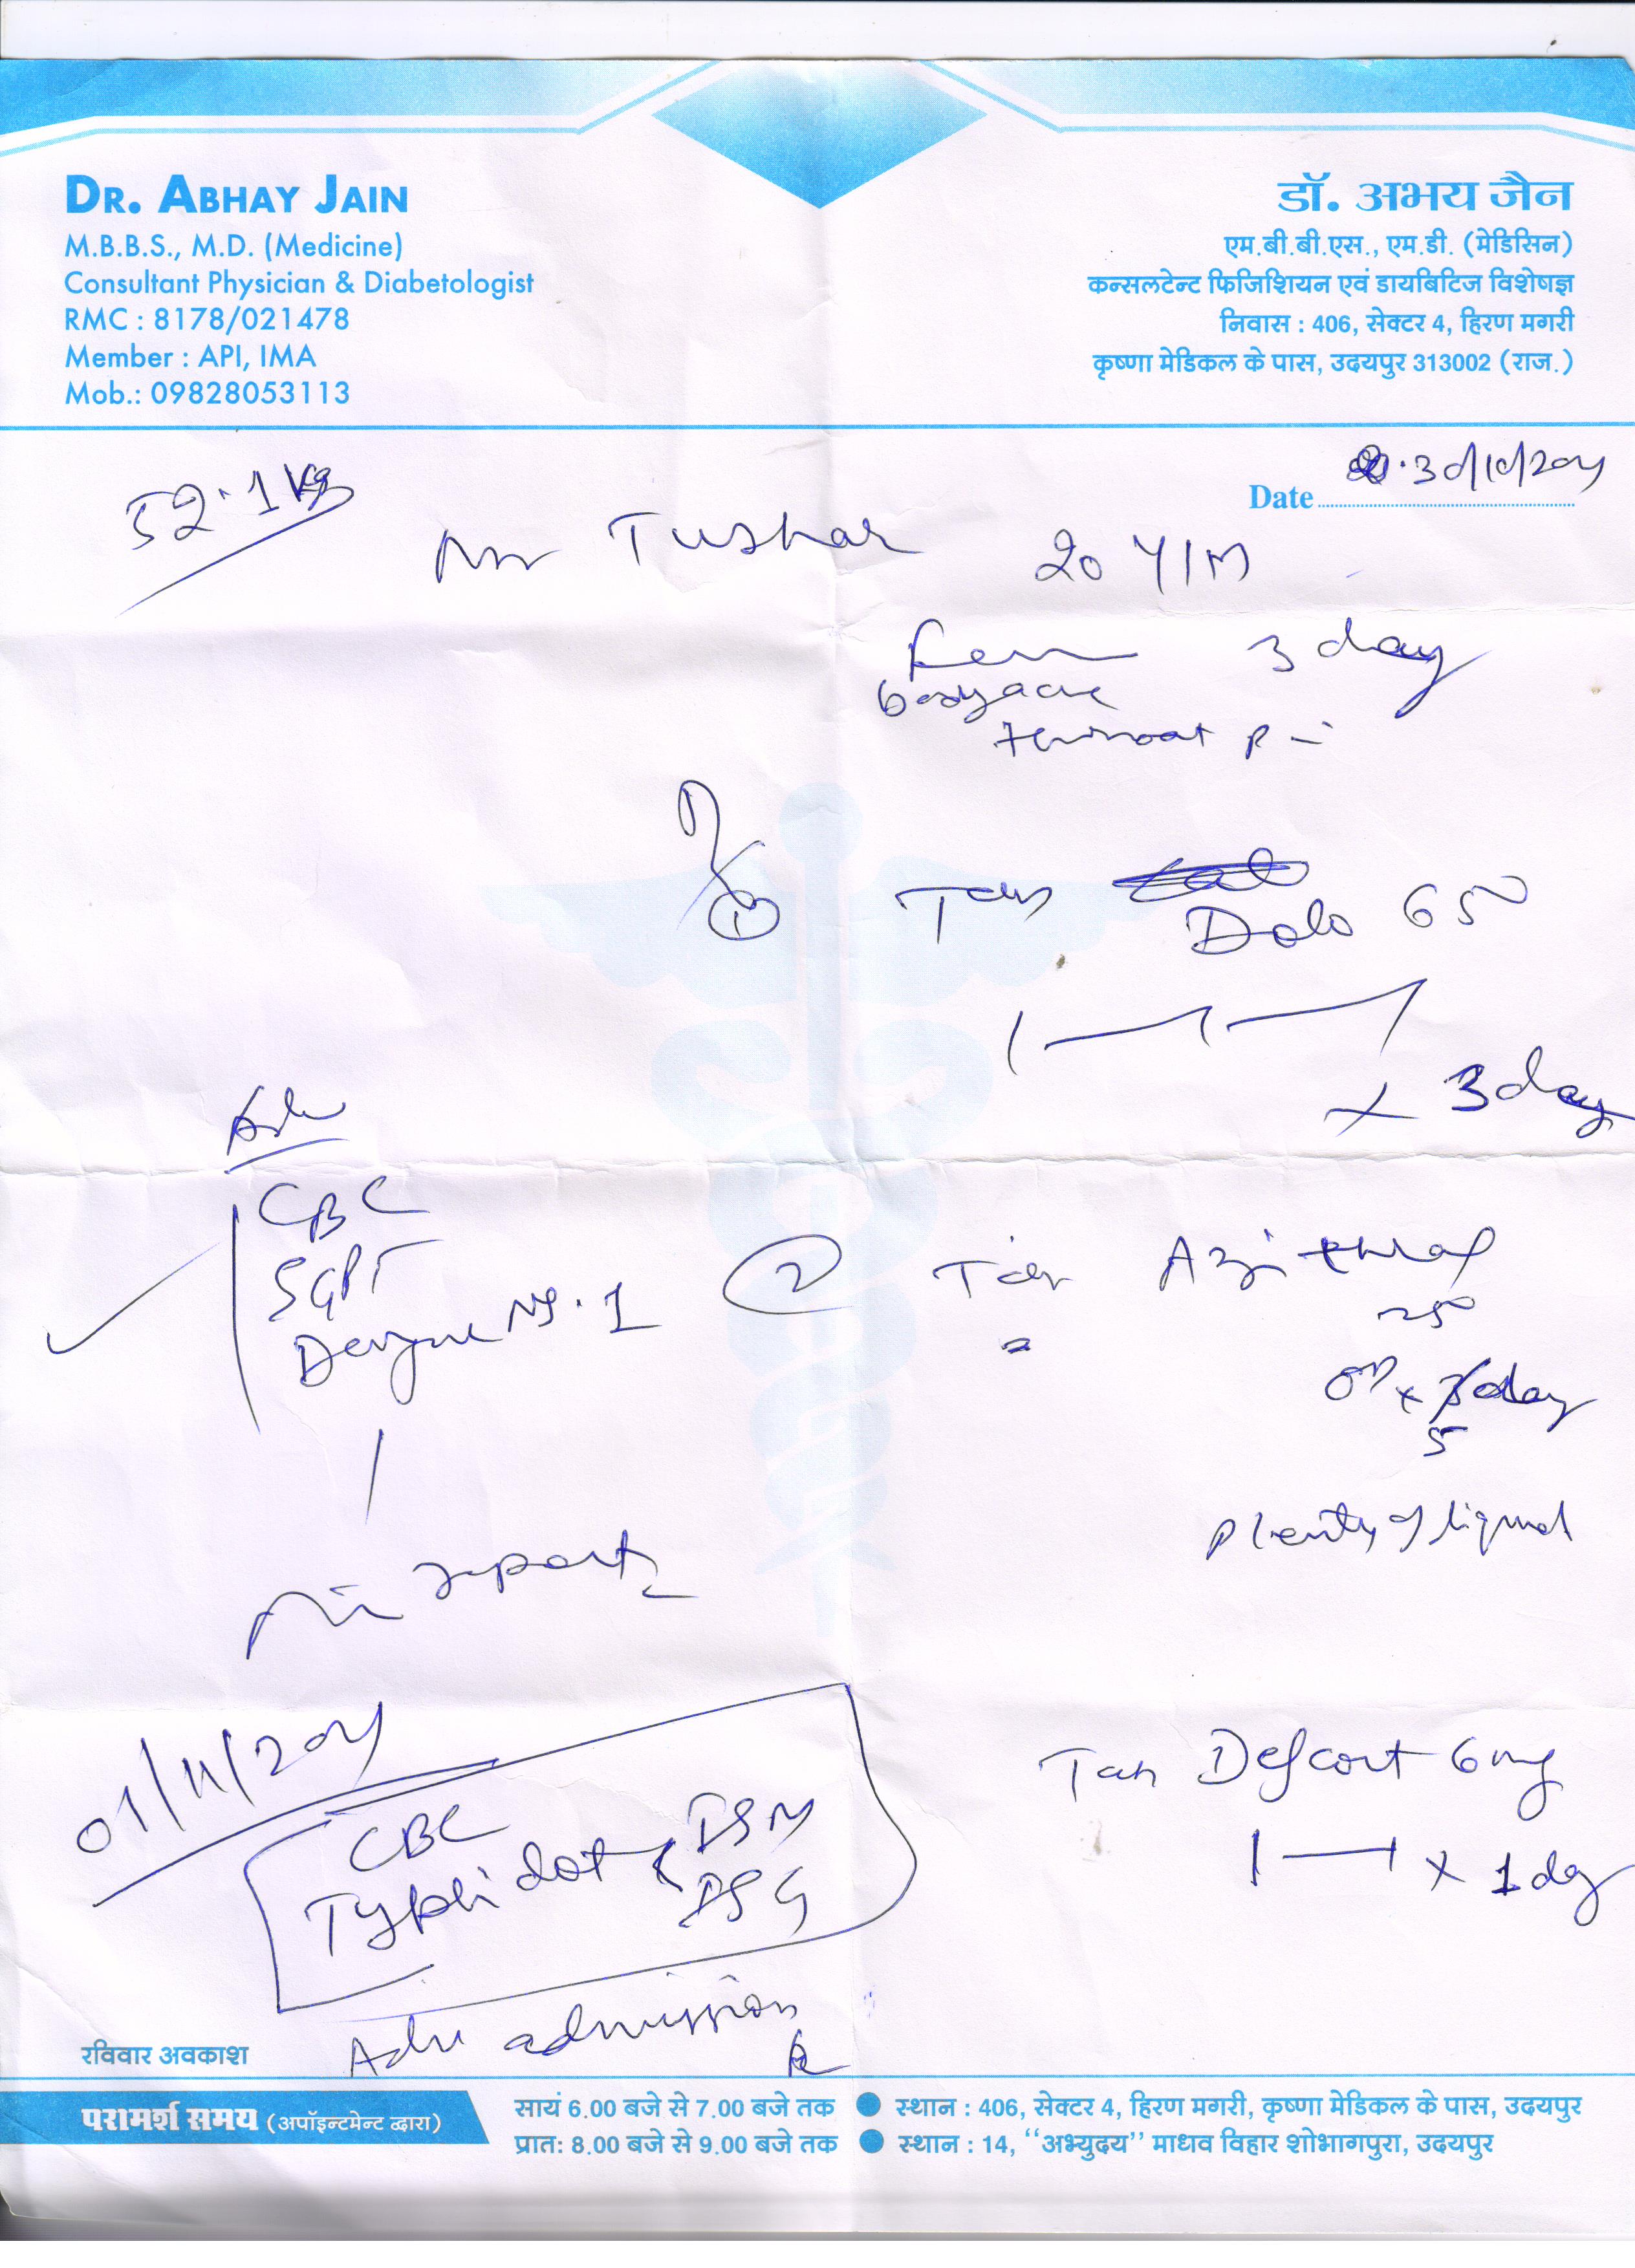 DR. ABHAY JAIN
M.B.B.S., M.D. (Medicine)
Consultant Physician & Diabetologist
RMC : 8178/021478
Member : API, IMA
Mob.: 09828053113
डॉ. अभय जैन
एम.बी.बी.एस., एम.डी. (मेडिसिन)
कन्सलटेन्ट फिजिशियन एवं डायबिटिज विशेषज्ञ
निवास : 406, सेक्टर 4, हिरण मगरी
कृष्णा मेडिकल के पास, उदयपुर 313002 (राज.)
Date 30/10/2021
52.1 kg
Mr Tushar 20 Y/M
Fever 3 day
bodyache
throat
① Tab Dolo 650
1—1—1
x 3 day
Adv
CBC
SGPT
Dengue NS.1
② Tab Azithral
250
OD x 5 day
plenty of liquid
reports
01/11/2021
CBC
Typhidot IgM
IgG
Adv admission
Tab Defcort 6mg
1—1 x 1 day
रविवार अवकाश
परामर्श समय (अपॉइन्टमेन्ट द्वारा)
सायं 6.00 बजे से 7.00 बजे तक ● स्थान : 406, सेक्टर 4, हिरण मगरी, कृष्णा मेडिकल के पास, उदयपुर
प्रात: 8.00 बजे से 9.00 बजे तक ● स्थान : 14, ‘‘अभ्युदय’’ माधव विहार शोभागपुरा, उदयपुर